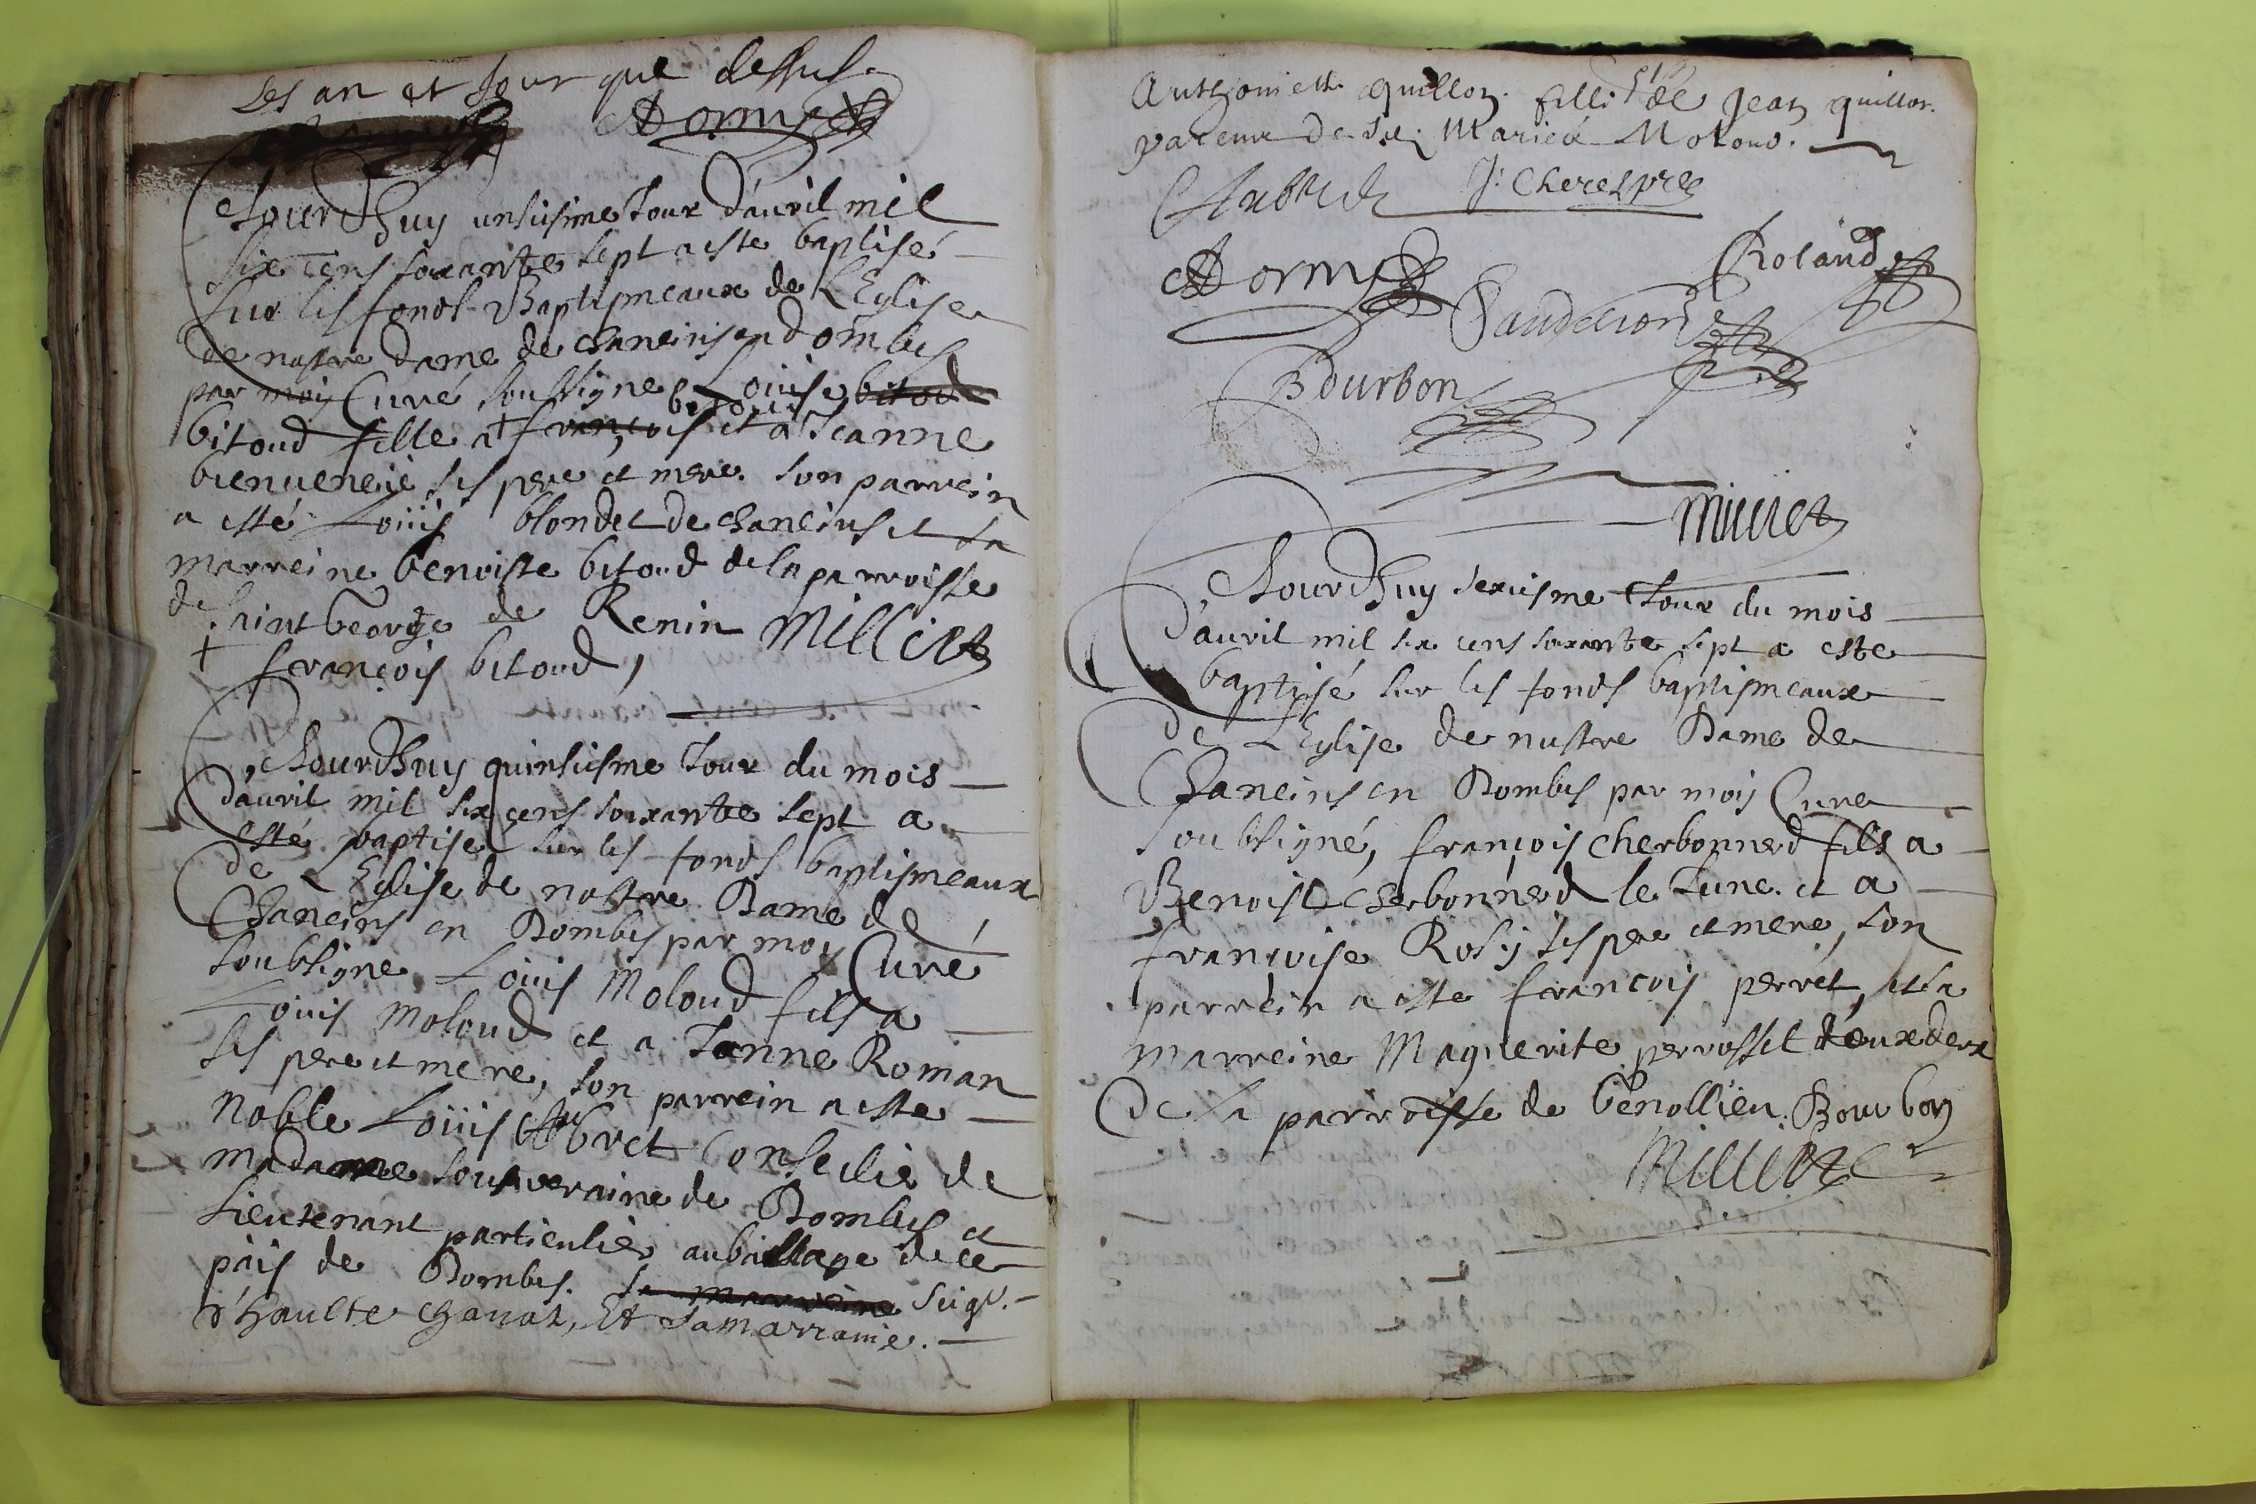 Les an et Jour que dessus.
Dormy
Jourdhuy unsiesme Jour d'auril mil
six cens soixante sept a este baptisé
sur les fonds Baptismeaux de L'Eglise
de nostre dame de chaneins en dombes
par moy Curé soussigne Louise bitoud
bitoud fille a + françois bitoud et a Jeanne
ses pere et mere. son parrein
a esté Loüis blondet de chaneins et sa
marreine benoiste bitoud de la parroisse
de saint george de Renin Milliet
+ françois bitoud,
Jourdhuy quinsiesme Jour du mois
d'auril mil six cens soixante sept a
esté baptise sur les fonds baptismeaux
de L'Eglise de nostre Dame de
Chaneins en Dombes par moy Curé
soubsigne Louis Moloud fils a
Louis Moloud et a Janne Roman
ses pere et mere, son parrein a este
Noble Loüis Aubret Conseilie de
Madame souveraine de Dombes et
Lieutenant particulier au baillage de ce
païs de Dombes. sa marreine seigr.
d'haulte chanal, Et sa marraine.
Anthoinette Guillon. fille de Jean guillon.
Mariée Moloud.
Aubret J: Cherel pre
Dormy Roland
Baudceron
Bourbon
Milliet
Jourdhuy Jour du mois
d'auril mil six cens soixante sept a este
baptisé sur les fonds baptismeaux
de L'Eglise de nostre Dame de
Chaneins en Dombes par moy Cure
soubsigné, françois cherbonnerd fils a
Benoist cherbonnerd le June et a
françoise Rosy ses pere et mere, son
parrein a este françois perret, et sa
marreine Marguerite perrosset touxdeux
de la parroisse de benollieu. Bourbon
Milliet